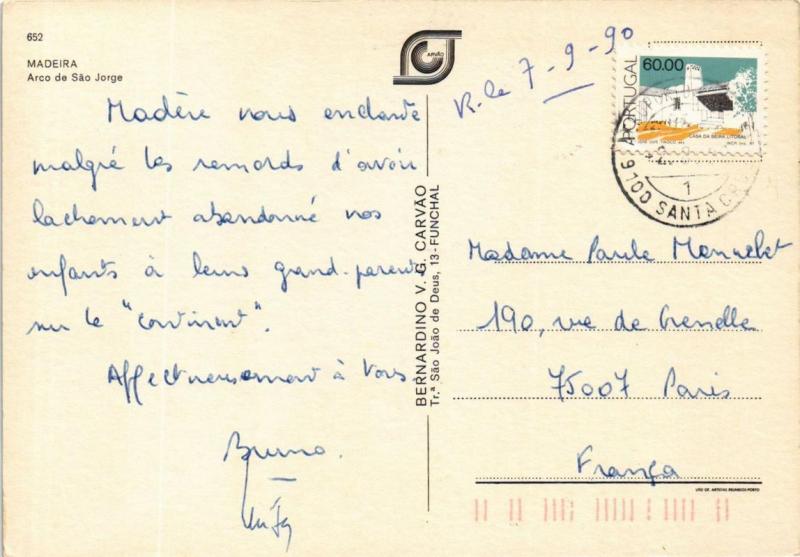 652
MADEIRA
Arco de São Jorge
CARVÃO
R. le 7-9-90
PORTUGAL
60.00
CASA DA BEIRA LITORAL
9100 SANTA CRUZ
1
Madère nous enchante
malgré les remords d'avoir
lachement abandonné nos
enfants à leurs grand-parents
sur le "continent".
Affectueusement à Vous
Bruno.
BERNARDINO V. G. CARVÃO
Tr.ª São João de Deus, 13-FUNCHAL
Madame Paule
190, rue de Grenelle
75007 Paris
França